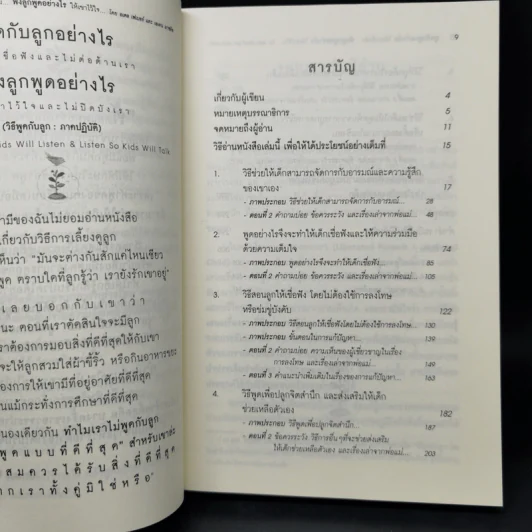 พูดกับลูกอย่างไร
เชื่อฟังและไม่ต่อต้านเรา
ฟังลูกพูดอย่างไร
ให้เขาไว้ใจและไม่ปิดบังเรา
(วิธีพูดกับลูก : ภาคปฏิบัติ)
Kids Will Listen & Listen So Kids Will Talk
สามีของฉันไม่ยอมอ่านหนังสือ
เกี่ยวกับวิธีการเลี้ยงดูลูก
เห็นว่า "มันจะต่างกันสักแค่ไหนเชียว
พูด ตราบใดที่ลูกรู้ว่า เรายังรักเขาอยู่"
เลยบอกกับเขาว่า
นะ ตอนที่เราตัดสินใจจะมีลูก
เราต้องการมอบสิ่งที่ดีที่สุดให้กับเขา
จะให้ลูกสวมใส่ผ้าขี้ริ้ว หรือกินอาหารขยะ
ต้องการให้เขามีที่อยู่อาศัยที่ดีที่สุด
แม้กระทั่งการศึกษาที่ดีที่สุด
นองเดียวกัน ทำไมเราไม่พูดกับลูก
พูดแบบที่ดีที่สุด" สำหรับเขาล่ะ
สมควรได้รับสิ่งที่ดีที่สุด
จากเราทั้งคู่มิใช่หรือ"
9
สารบัญ
เกี่ยวกับผู้เขียน 4
หมายเหตุบรรณาธิการ 5
จดหมายถึงผู้อ่าน 11
วิธีอ่านหนังสือเล่มนี้ เพื่อให้ได้ประโยชน์อย่างเต็มที่ 15
1. วิธีช่วยให้เด็กสามารถจัดการกับอารมณ์และความรู้สึก
ของเขาเอง 17
- ภาพประกอบ วิธีช่วยให้เด็กสามารถจัดการกับอารมณ์... 28
- ตอนที่ 2 คำถามบ่อย ข้อควรระวัง และเรื่องเล่าจากพ่อแม่... 48
2. พูดอย่างไรจึงจะทำให้เด็กเชื่อฟังและให้ความร่วมมือ
ด้วยความเต็มใจ 74
- ภาพประกอบ พูดอย่างไรจึงจะทำให้เด็กเชื่อฟัง... 85
- ตอนที่ 2 คำถามบ่อย ข้อควรระวัง และเรื่องเล่าจากพ่อแม่... 105
3. วิธีสอนลูกให้เชื่อฟัง โดยไม่ต้องใช้การลงโทษ
หรือข่มขู่บังคับ 122
- ภาพประกอบ วิธีสอนลูกให้เชื่อฟังโดยไม่ต้องใช้การลงโทษ... 130
- ภาพประกอบ ขั้นตอนในการแก้ปัญหา... 139
- ตอนที่ 2 คำถามบ่อย ความเห็นของผู้เชี่ยวชาญในเรื่อง
การลงโทษ และเรื่องเล่าจากพ่อแม่... 149
- ตอนที่ 3 คำแนะนำเพิ่มเติมในเรื่องของการแก้ปัญหา... 163
4. วิธีพูดเพื่อปลูกจิตสำนึก และส่งเสริมให้เด็ก
ช่วยเหลือตัวเอง 182
- ภาพประกอบ วิธีพูดเพื่อปลูกจิตสำนึก... 187
- ตอนที่ 2 ข้อควรระวัง วิธีการอื่นๆที่จะช่วยส่งเสริม
ให้เด็กช่วยเหลือตัวเอง และเรื่องเล่าจากพ่อแม่... 203